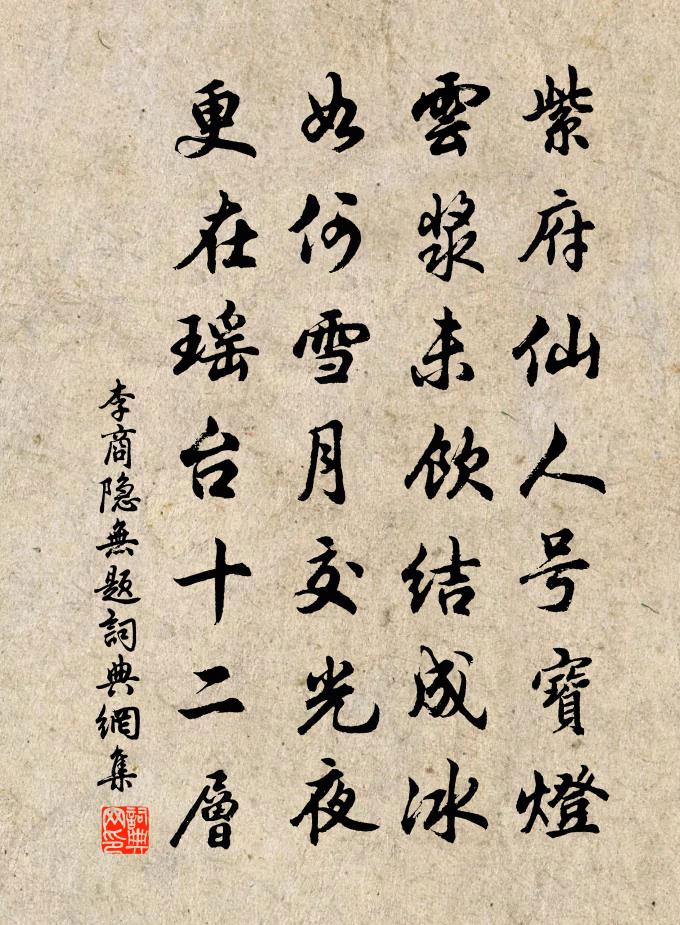 紫府仙人号寶燈
雲漿未飲結成冰
如何雪月交光夜
更在瑶台十二層
李商隐無題詞典網集
詞典
网印